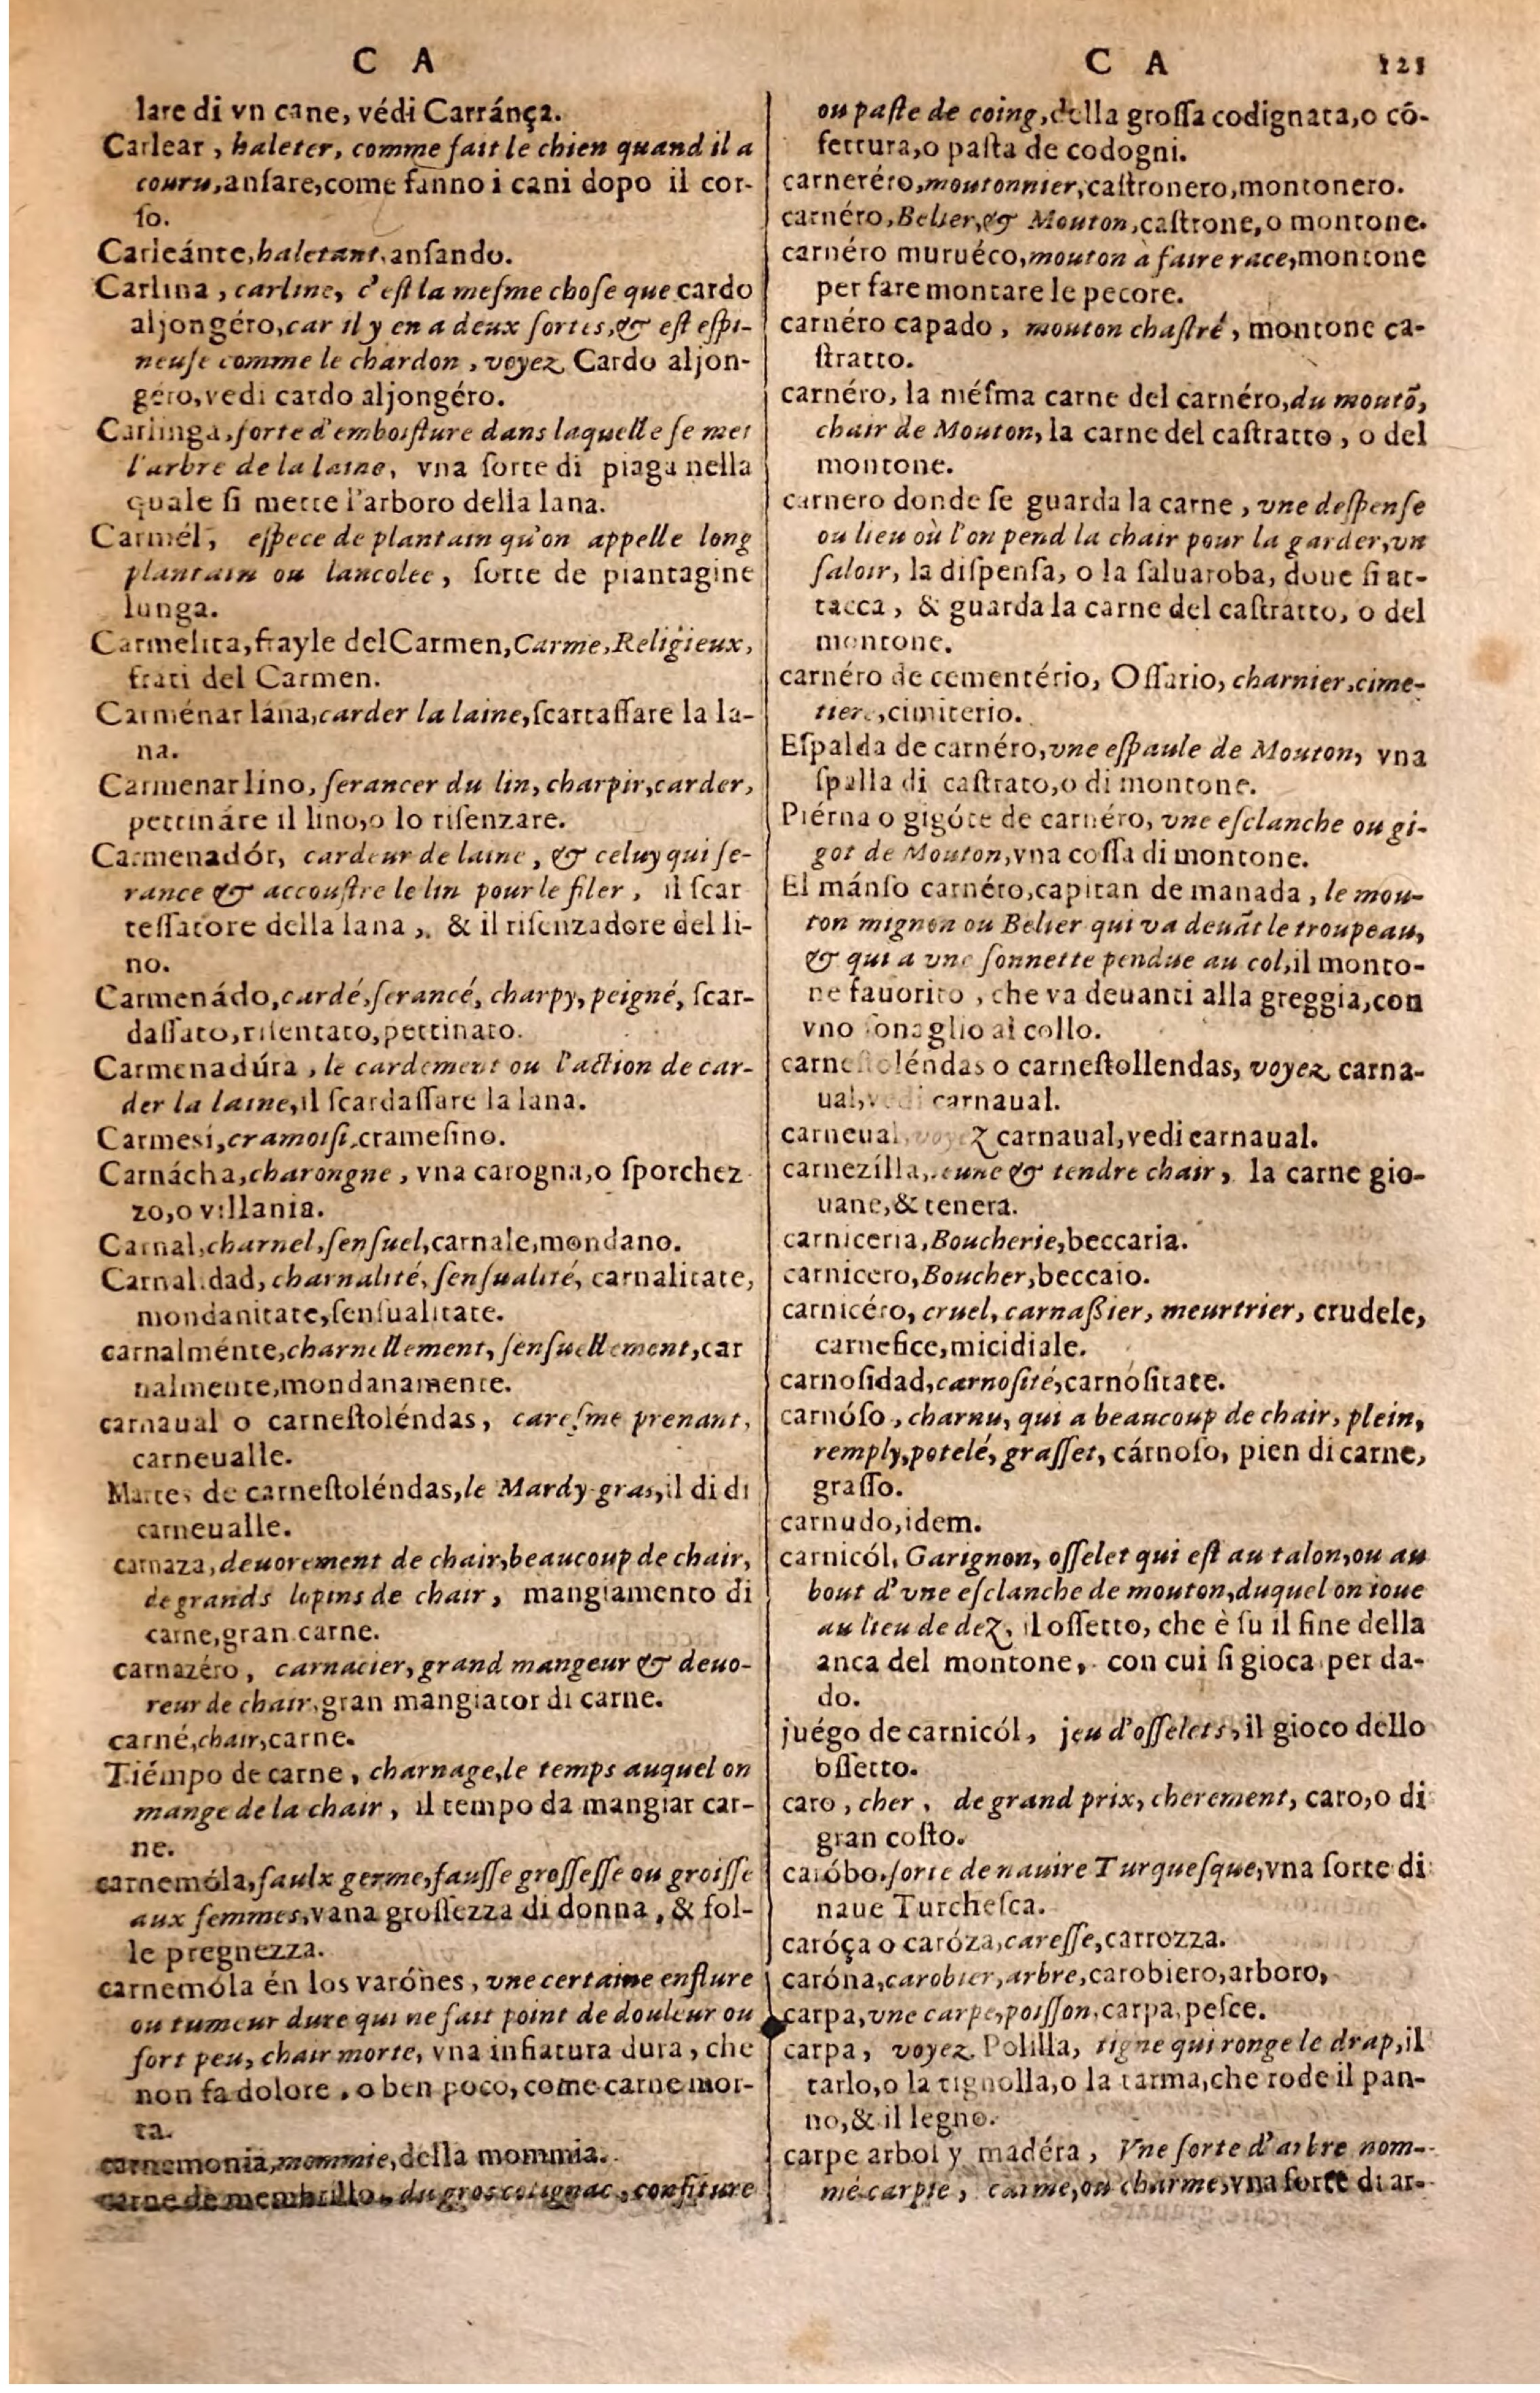 C A
lare di vn cane, védi Carránça.
Carlear, haleter, comme fait le chien quand il a
couru, anſare, come fanno i cani dopo il cor-
ſo.
Carleánte, haletant, anſando.
Carlina, carline, c'eſt la meſme choſe que cardo
aljongéro, car il y en a deux ſortes, & eſt eſpi-
neuſe comme le chardon, voyez Cardo aljon-
géro, vedi cardo aljongéro.
Carlinga, ſorte d'emboiſture dans laquelle ſe met
l'arbre de la laine, vna ſorte di piaga nella
quale ſi mette l'arboro della lana.
Carmél, eſpece de plantain qu'on appelle long
plantain ou lancolee, ſorte de piantagine
lunga.
Carmelita, frayle del Carmen, Carme, Religieux,
frati del Carmen.
Carménar lána, carder la laine, ſcartaſſare la la-
na.
Carmenar lino, ſerancer du lin, charpir, carder,
pettináre il lino, o lo riſenzare.
Carmenadór, cardeur de laine, & celuy qui ſe-
rance & accouſtre le lin pour le filer, il ſcar
teſſatore della lana, & il riſenzadore del li-
no.
Carmenádo, cardé, ſerancé, charpy, peigné, ſcar-
daſſato, riſentato, pettinato.
Carmenadúra, le cardement ou l'action de car-
der la laine, il ſcardaſſare la lana.
Carmesí, cramoiſi, crameſino.
Carnácha, charongne, vna carogna, o ſporchez
zo, o villania.
Carnal, charnel, ſenſuel, carnale, mondano.
Carnalidad, charnalité, ſenſualité, carnalitate,
mondanitate, ſenſualitate.
carnalménte, charnellement, ſenſuellement, car
nalmente, mondanamente.
carnaual o carneſtoléndas, careſme prenant,
carneualle.
Martes de carneſtoléndas, le Mardy-gras, il di di
carneualle.
carnaza, deuorement de chair, beaucoup de chair,
de grands lopins de chair, mangiamento di
carne, gran carne.
carnazéro, carnacier, grand mangeur & deuo-
reur de chair, gran mangiator di carne.
carné, chair, carne.
Tiémpo de carne, charnage, le temps auquel on
mange de la chair, il tempo da mangiar car-
ne.
carnemóla, faulx germe, fauſſe groſſeſſe ou groiſſe
aux femmes, vana groſſezza di donna, & fol-
le pregnezza.
carnemóla én los varónes, vne certaine enflure
ou tumeur dure qui ne fait point de douleur ou
fort peu, chair morte, vna infiatura dura, che
non fa dolore, o ben poco, come carne mor-
ta.
carnemonia, mommie, della mommia.
carne de membrillo, du gros cotignac, confiture
C A 121
ou paſte de coing, della groſſa codignata, o cō-
fettura, o paſta de codogni.
carneréro, moutonnier, caſtronero, montonero.
carnéro, Belier, & Mouton, caſtrone, o montone.
carnéro muruéco, mouton à faire race, montone
per fare montare le pecore.
carnéro capado, mouton chaſtré, montone ca-
ſtratto.
carnéro, la niéſma carne del carnéro, du moutō,
chair de Mouton, la carne del caſtratto, o del
montone.
carnero donde ſe guarda la carne, vne deſpenſe
ou lieu où l'on pend la chair pour la garder, vn
ſaloir, la diſpenſa, o la ſaluaroba, doue ſi at-
tacca, & guarda la carne del caſtratto, o del
montone.
carnéro de cementério, Oſſario, charnier, cime-
tiere, cimiterio.
Eſpalda de carnéro, vne eſpaule de Mouton, vna
ſpalla di caſtrato, o di montone.
Piérna o gigóte de carnéro, vne eſclanche ou gi-
got de Mouton, vna coſſa di montone.
El mánſo carnéro, capitan de manada, le mou-
ton mignon ou Belier qui va deuāt le troupeau,
& qui a vne ſonnette pendue au col, il monto-
ne fauorito, che va deuanti alla greggia, con
vno ſonaglio al collo.
carneſtoléndas o carneſtollendas, voyez carna-
ual, vedi carnaual.
carneual, voyez carnaual, vedi carnaual.
carnezílla, ieune & tendre chair, la carne gio-
uane, & tenera.
carniceria, Boucherie, beccaria.
carnicero, Boucher, beccaio.
carnicéro, cruel, carnaßier, meurtrier, crudele,
carnefice, micidiale.
carnoſidad, carnoſité, carnóſitate.
carnóſo, charnu, qui a beaucoup de chair, plein,
remply, potelé, graſſet, cárnoſo, pien di carne,
graſſo.
carnudo, idem.
carnicól, Garignon, oſſelet qui eſt au talon, ou au
bout d'vne eſclanche de mouton, duquel on ioue
au lieu de dez, il oſſetto, che è ſu il fine della
anca del montone, con cui ſi gioca per da-
do.
juégo de carnicól, jeu d'oſſelets, il gioco dello
oſſetto.
caro, cher, de grand prix, cherement, caro, o di
gran coſto.
caróbo, ſorte de nauire Turqueſque, vna ſorte di
naue Turcheſca.
caróça o caróza, careſſe, carrozza.
caróna, carobier, arbre, carobiero, arboro,
carpa, vne carpe, poiſſon, carpa, peſce.
carpa, voyez Polilla, tigne qui ronge le drap, il
tarlo, o la tignolla, o la tarma, che rode il pan-
no, & il legno.
carpe arbol y madéra, Vne ſorte d'arbre nom-
mé carpie, carme, ou charme, vna ſorte di ar-